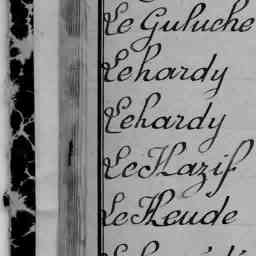 Le Guluche
Lehardy
Lehardy
Le Hazif
Le Heude